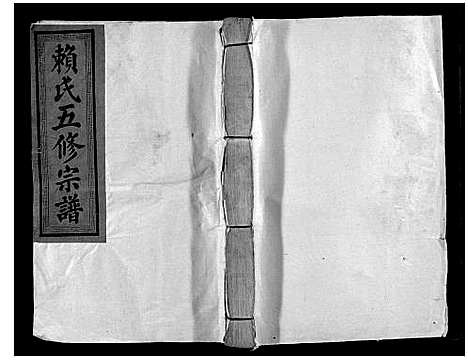 賴氏五修宗譜